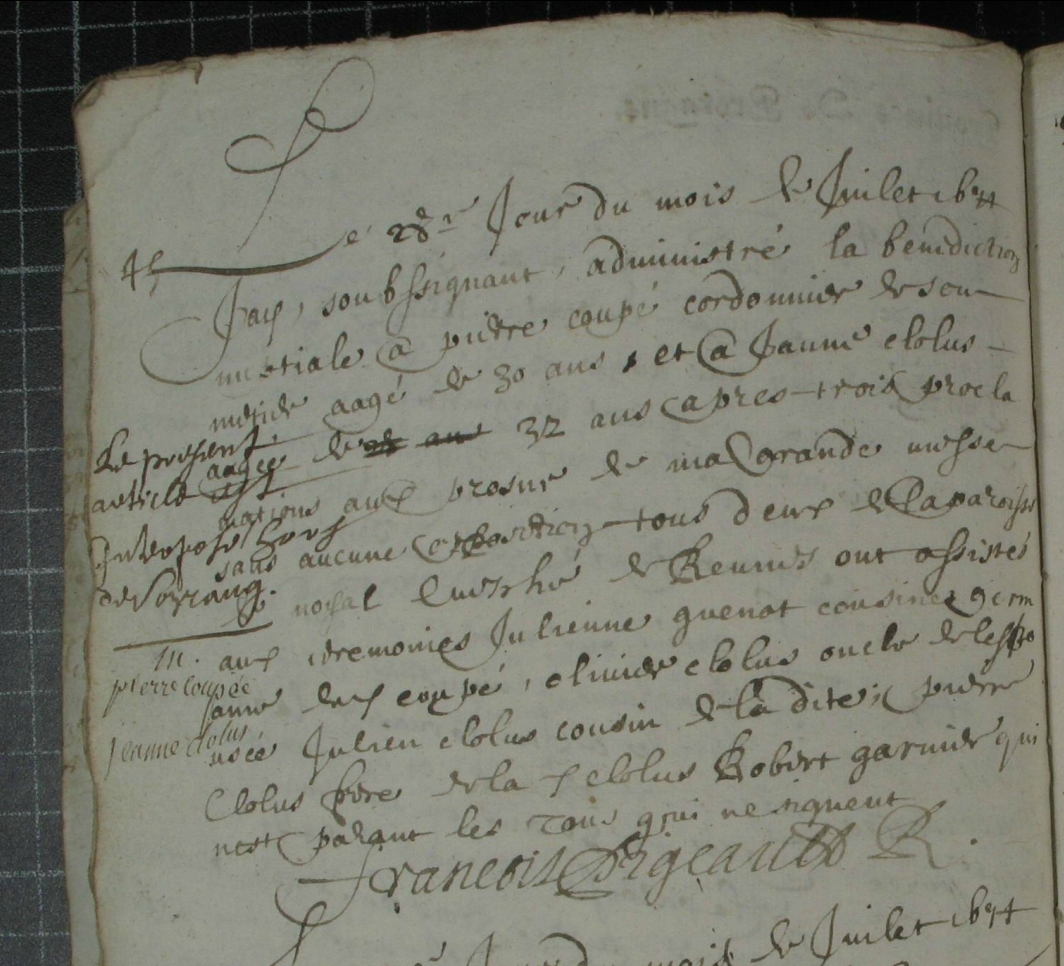 Le 28e Jour du mois de Juilet 1677
J'ay, soubssignant, administré la benediction
nuptiale a pierre coupé cordonnier de son
metier aagé de 30 ans, et a Janne clolus
aagée de 32 ans apres trois procla
mations aux prosne de ma grande messe
sans aucune opposition tous deux de la paroisse
noyal evesché de Rennes ont assistés
aux ceremonies Julienne guenot cousine germ
aine du coupé, olivier clolus oncle de lespo
usée Julien clolus cousin de la dite, pierre
Clolus frere de la clolus Robert garnier qui
nest parant les tous qui ne signent
Francois R.
Le present
article est
Interposé hors
de son rang.
m.
pierre coupée
Jeanne clolus
Jour du mois de Juilet 1677